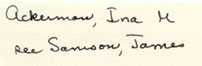 Ackerman, Ina M
see Samson, James